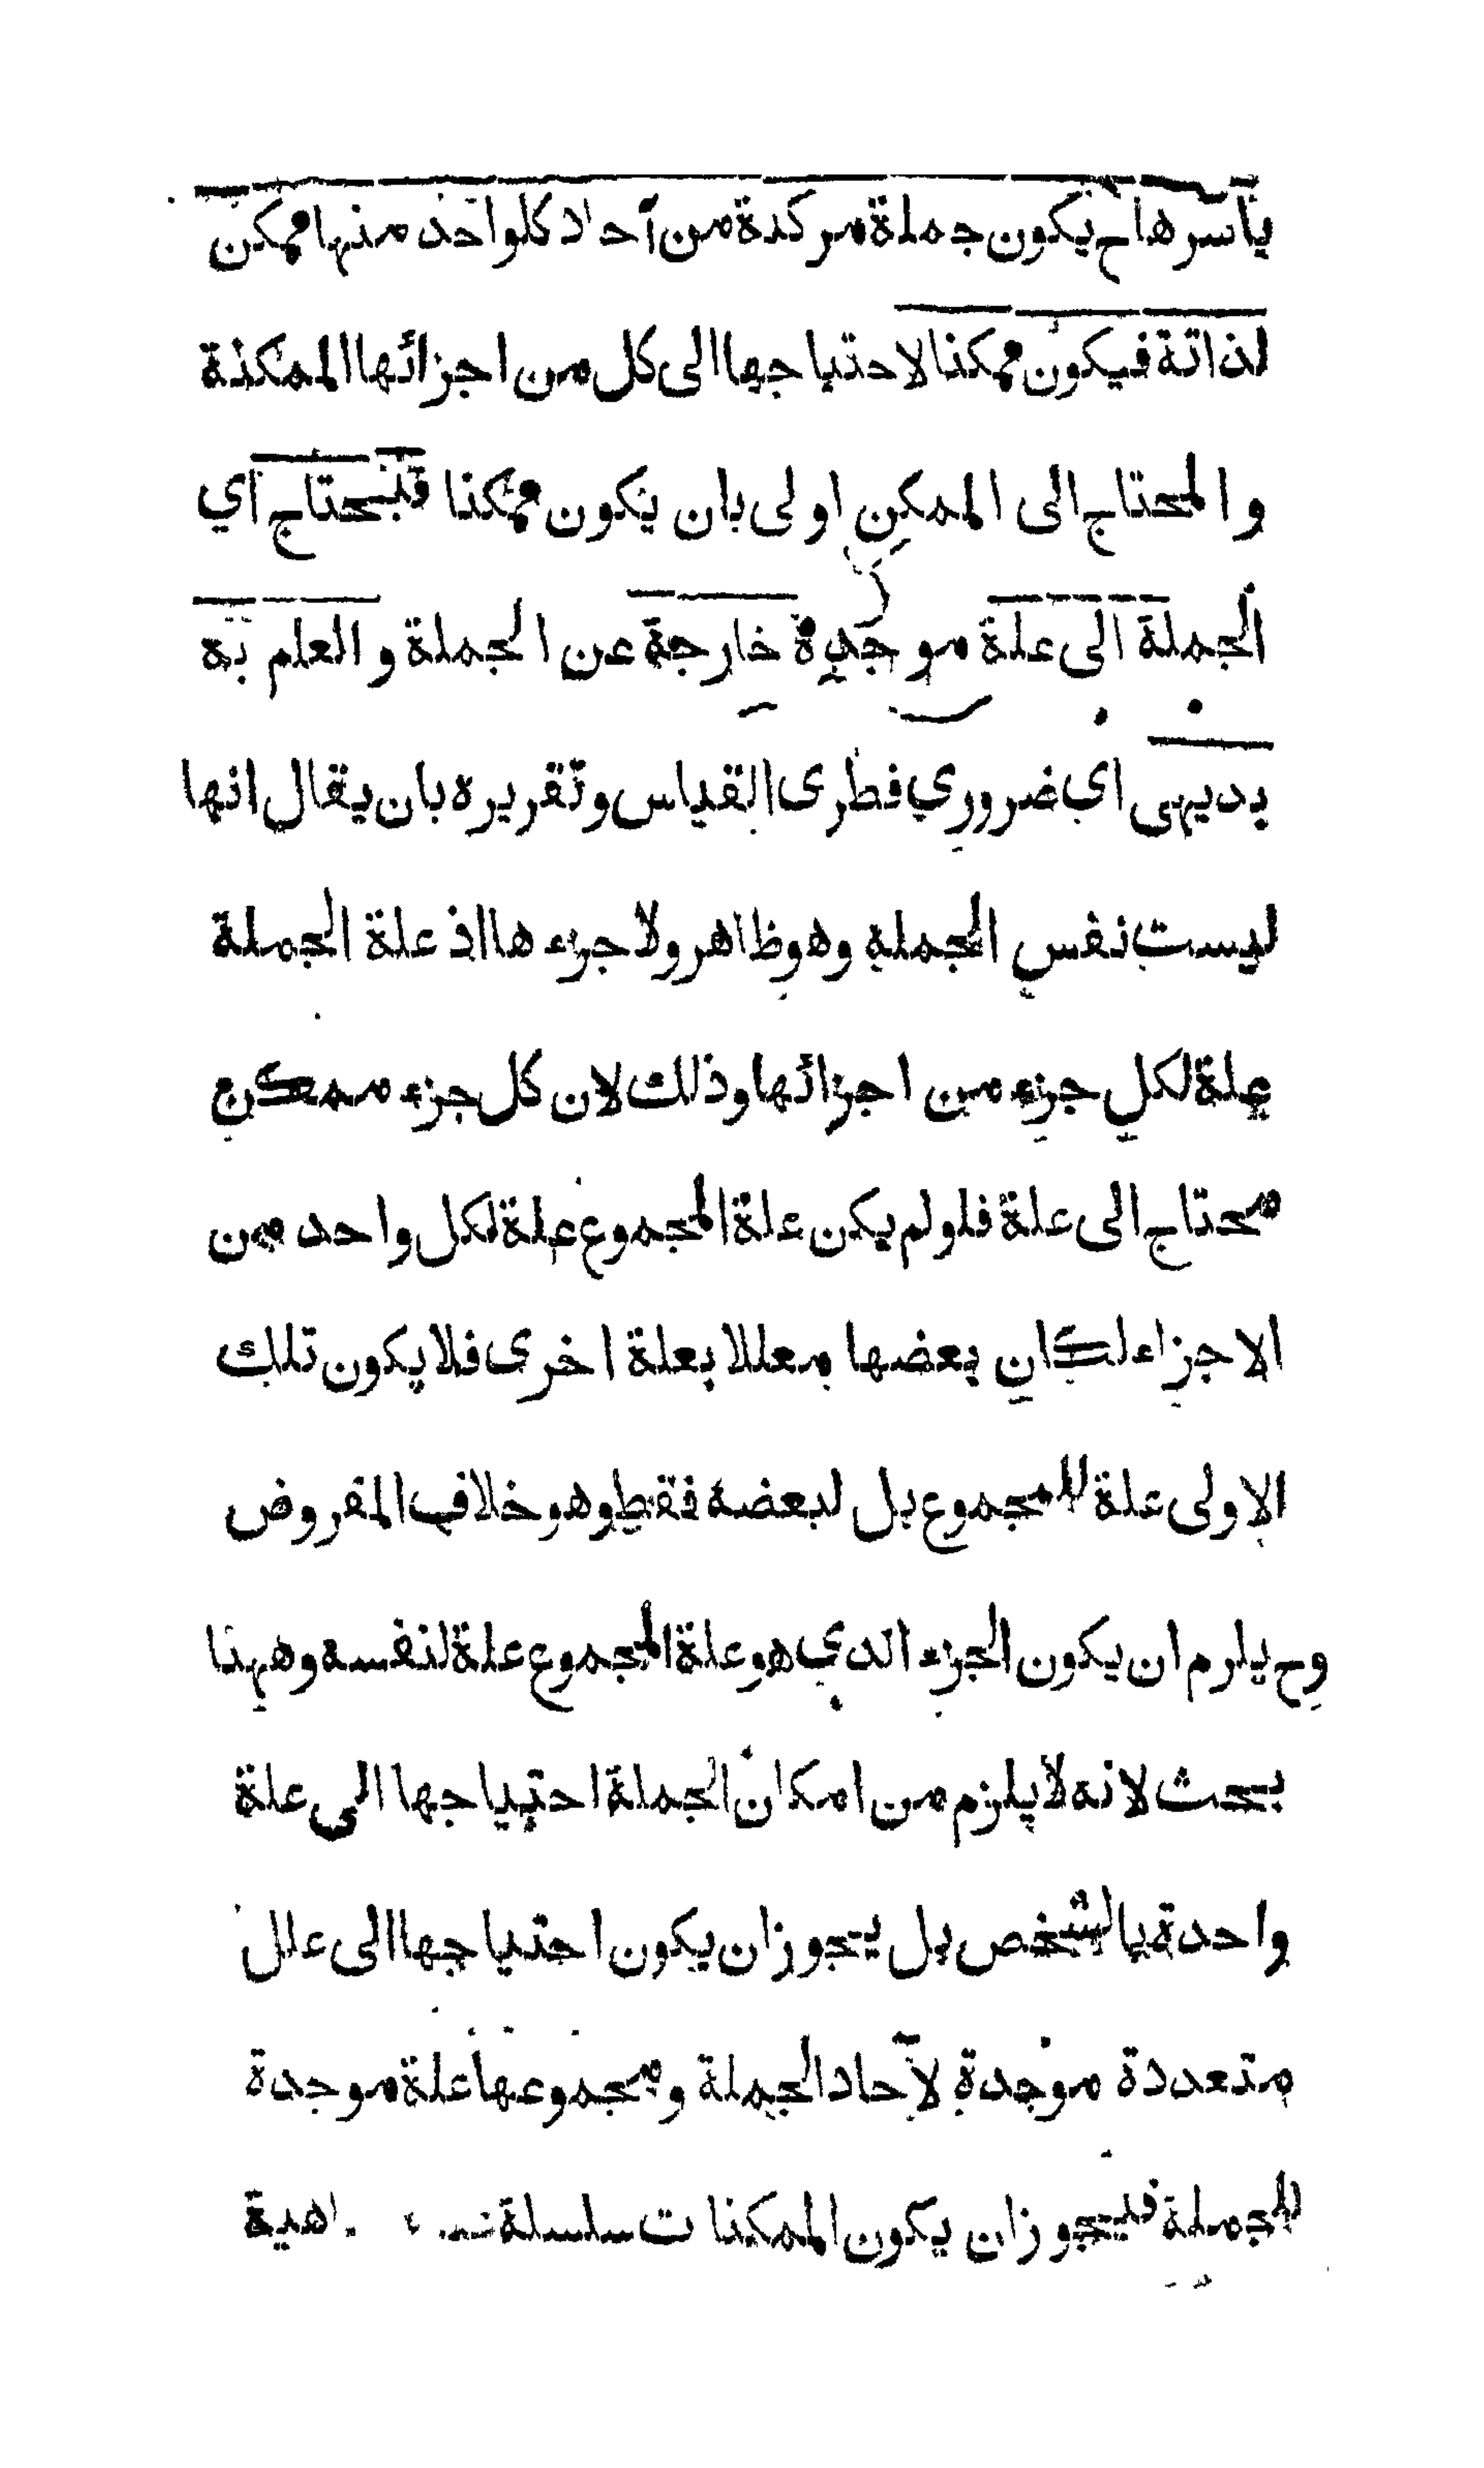 بأسرها ح يكون جملة مركبة من آحاد كل واحد منها ممكن
لذاته فيكون ممكنا لاحتياجها الى كل من اجزائها الممكنة
والمحتاج الى الممكن اولى بان يكون ممكنا فيحتاج اي
الجملة الى علة موجدة خارجة عن الجملة والعلم به
بديهى اي ضروري فطرى القياس وتقريره بان يقال انها
ليست نفس الجملة وهو ظاهر ولا جزء ها اذ علة الجملة
علة لكل جزء من اجزائها وذلك لان كل جزء ممكن
محتاج الى علة فلو لم يكن علة المجموع علة لكل واحد من
الاجزاء لكان بعضها معللا بعلة اخرى فلا يكون تلك
الاولى علة للمجموع بل لبعضه فقط وهو خلاف المفروض
وح يلزم ان يكون الجزء الذي هو علة المجموع علة لنفسه وههنا
بحث لانه لا يلزم من امكان الجملة احتياجها الى علة
واحدة بالشخص بل يجوز ان يكون احتياجها الى علل
متعددة موجدة لآحاد الجملة ومجموعها علة موجدة
للجملة فيجوز ان يكون الممكنات سلسلة